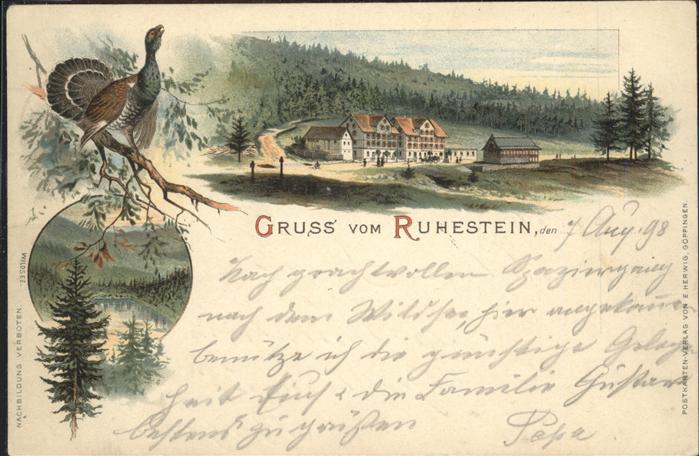 GRUSS VOM RUHESTEIN, den 7 Aug. 98
Nach prachtvollem Spaziergang
nach dem Wildsee hier angekommen
benütze ich die günstige Gelegen
heit Euch & die Familie Gustav
bestens zu grüßen
Papa
WILDSEE
NACHBILDUNG VERBOTEN
POSTKARTEN-VERLAG VON E. HERWIG, GÖPPINGEN.